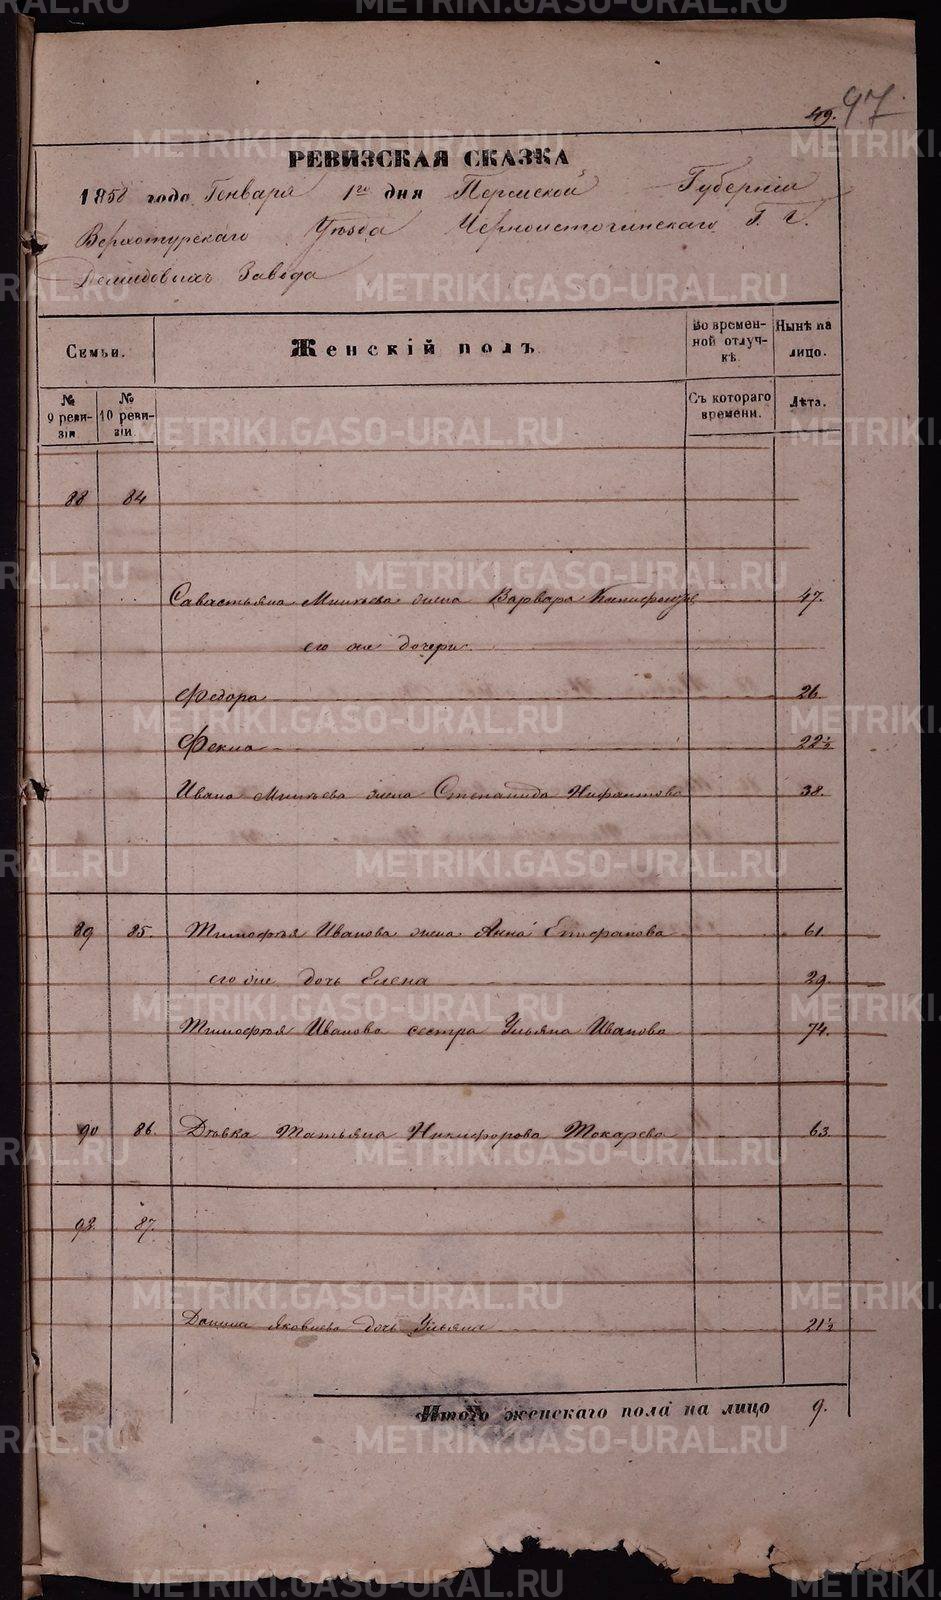 49. 97
РЕВИЗСКАЯ СКАЗКА
1858 года Генваря 1го дня Пермской Губернiи
Верхотурскаго Уѣзда Черноисточинскаго Г. Г.
Демидовыхъ Завода
Семьи. Женскiй полъ Во временной отлучкѣ. Нынѣ на лицо.
№ 9 ревизiи № 10 ревизiи Съ котораго времени. Лѣта.
88 84
Савастьяна жена Варвара 47.
его же дочери.
Федора 26.
Фекла 22½
Ивана жена Степанида Нифантова 38.
89 85. Тимофѣя Иванова жена Анна Епифанова 61.
его же дочь Елена 29.
Тимофѣя Иванова сестра Ульяна Иванова 74.
90 86. Дѣвка Татьяна Никифорова Токарева 63.
92. 87.
Данила Яковлева дочь Ульяна 21½
Итого женскаго пола на лицо 9.
METRIKI.GASO-URAL.RU